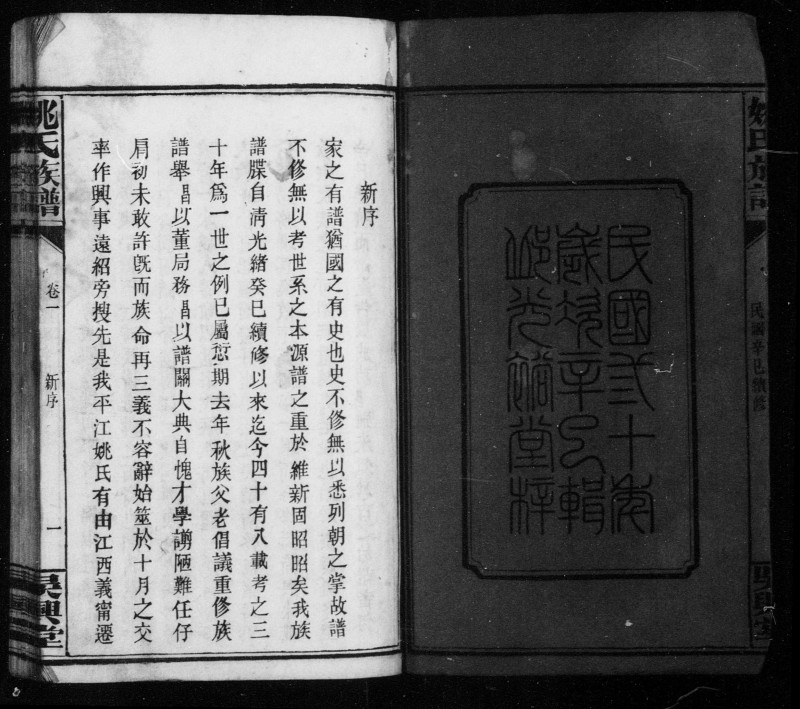 姚氏族譜
民國辛巳續修
吳興堂
民國弎十年
歲次辛巳輯
光裕堂梓
新序
家之有譜猶國之有史也史不修無以悉列朝之掌故譜
不修無以考世系之本源譜之重於維新固昭昭矣我族
譜牒自清光緒癸巳續修以來迄今四十有八載考之三
十年爲一世之例已屬愆期去年秋族父老倡議重修族
譜舉昌以董局務昌以譜關大典自愧才學謭陋難任仔
肩初未敢許旣而族命再三義不容辭始筮於十月之交
率作興事遠紹旁搜先是我平江姚氏有由江西義甯遷
姚氏族譜
卷一
新序
一
吳興堂